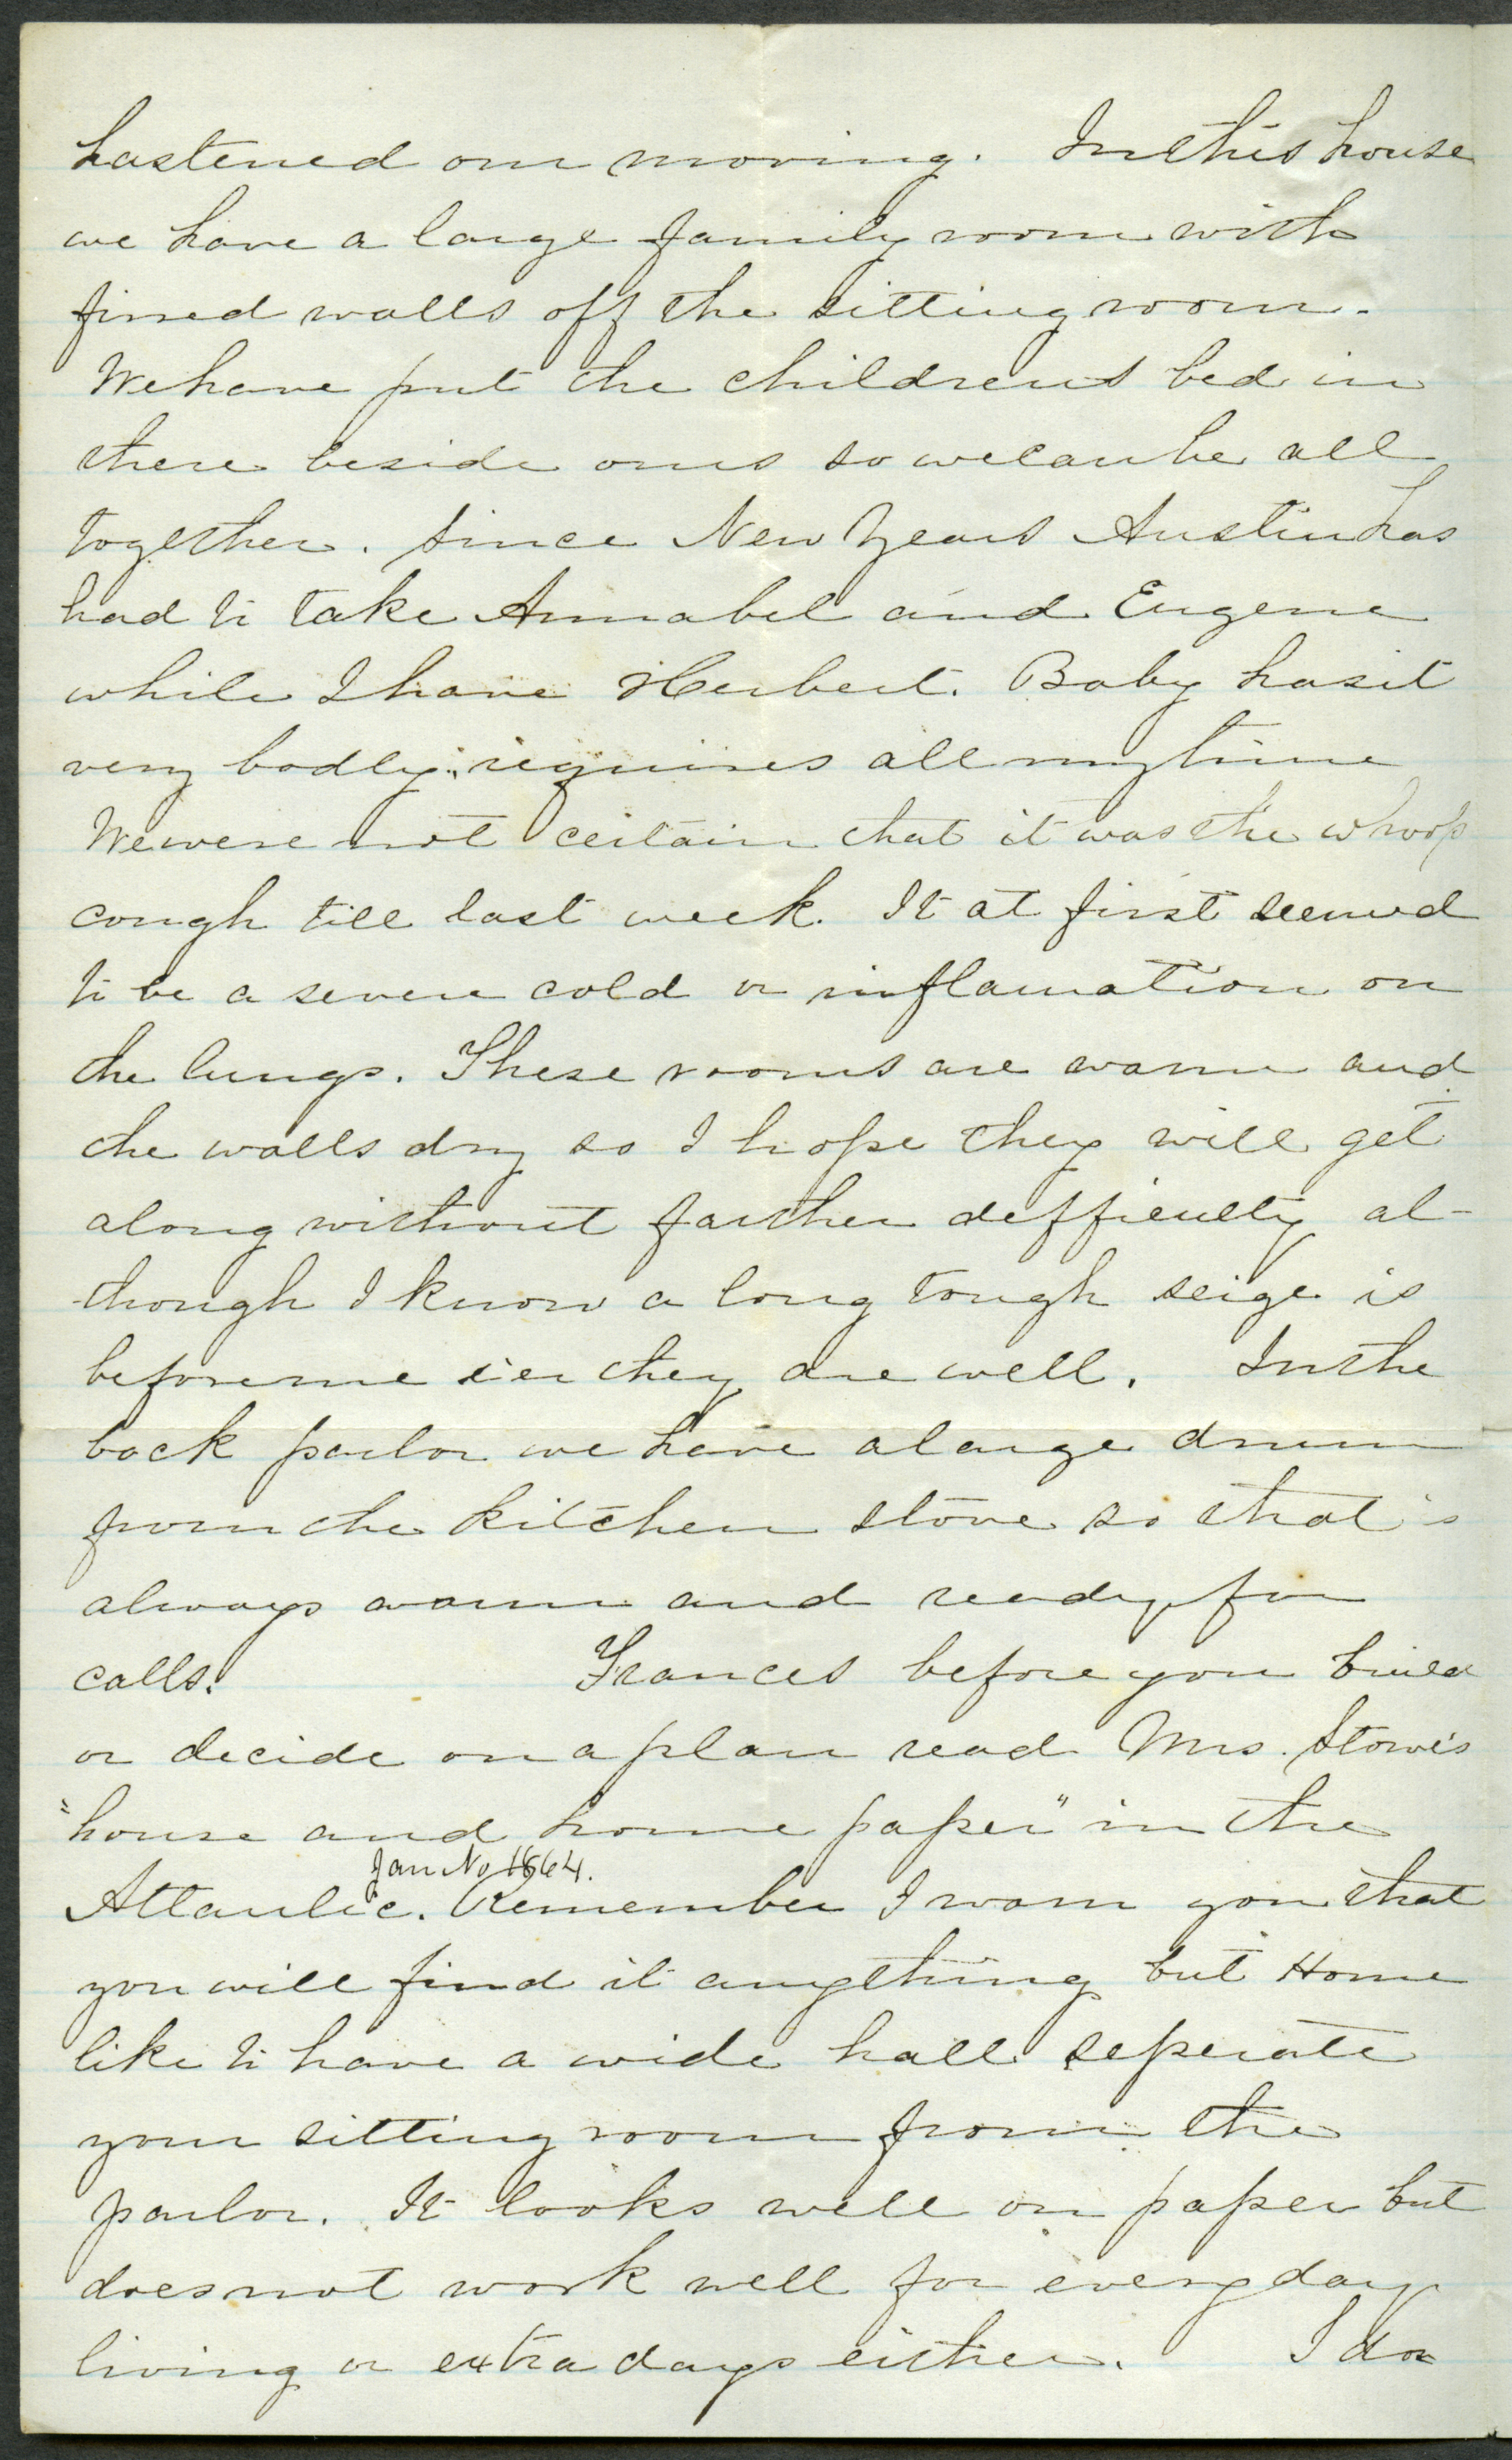 hastened our moving. In this house
we have a large family room with
firred walls off the sitting room.
We have put the childrens bed in
there beside ours so we can be all
together. Since New Years Austin has
had to take Annabel and Eugene
while I have Herbert. Baby has it
very badly; requires all my time
We were not certain that it was the whoop
cough till last week. It at first seemed
to be a severe cold or inflamation on
the lungs. These rooms are warm and
the walls dry so I hope they will get
along without farther defficulty al-
though I know a long tough seige is
before me e'er they are well. In the
back parlor we have a large drum
from the kitchen stove so that is
always warm and ready for
calls. Frances before you build
or decide on a plan read Mrs. Stowe's
"house and home paper" in the
Jan No 1864.
Atlantic. Remember I warn you that
you will find it anything but Home
like to have a wide hall seperate
your sitting room from the
parlor. It looks well on paper but
does not work well for every day
living or extra days either. I do